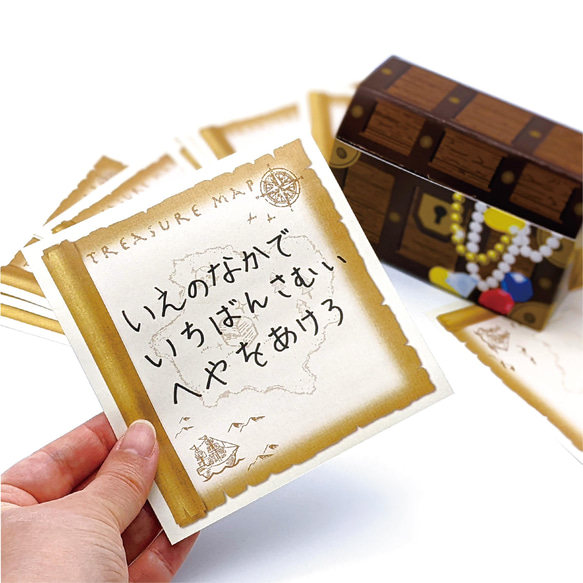 TREASURE MAP
いえのなかで
いちばんさむい
へやをあけろ